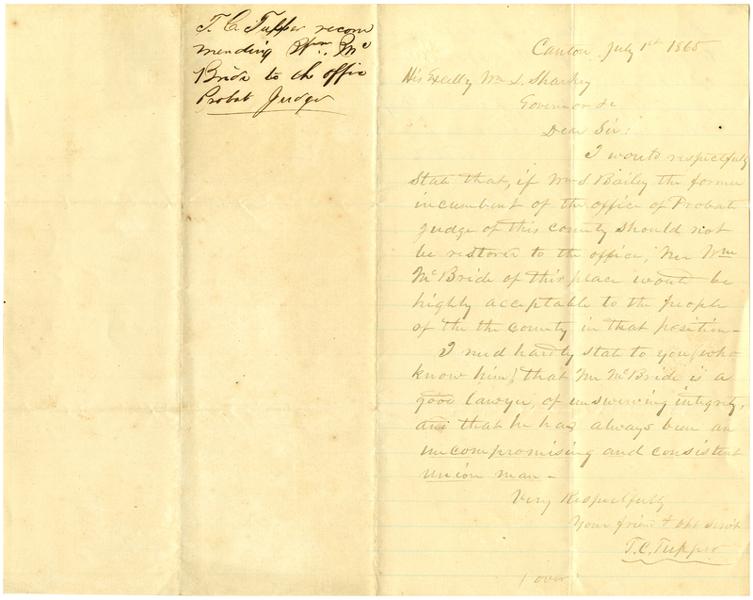 T. C. Tupper recom
mending Wm. Mc
Bride to the office
Probat Judge
Canton July 1st 1865
His Excelly Wm L. Sharkey
Governor &c
Dear Sir:
I would respectfully
state that, if Wm S. Bailey the former
incumbent of the office of Probate
Judge of this county should not
be restored to the office, Mr Wm
McBride of this place would be
highly acceptable to the people
of the the county in that position—
I need hardly state to you (who
know him) that Mr McBride is a
good lawyer, of unswerving integrity,
and that he has always been an
uncompromising and consistent
union man—
Very Respectfully
Your friend & obt servt
T. C. Tupper
(over